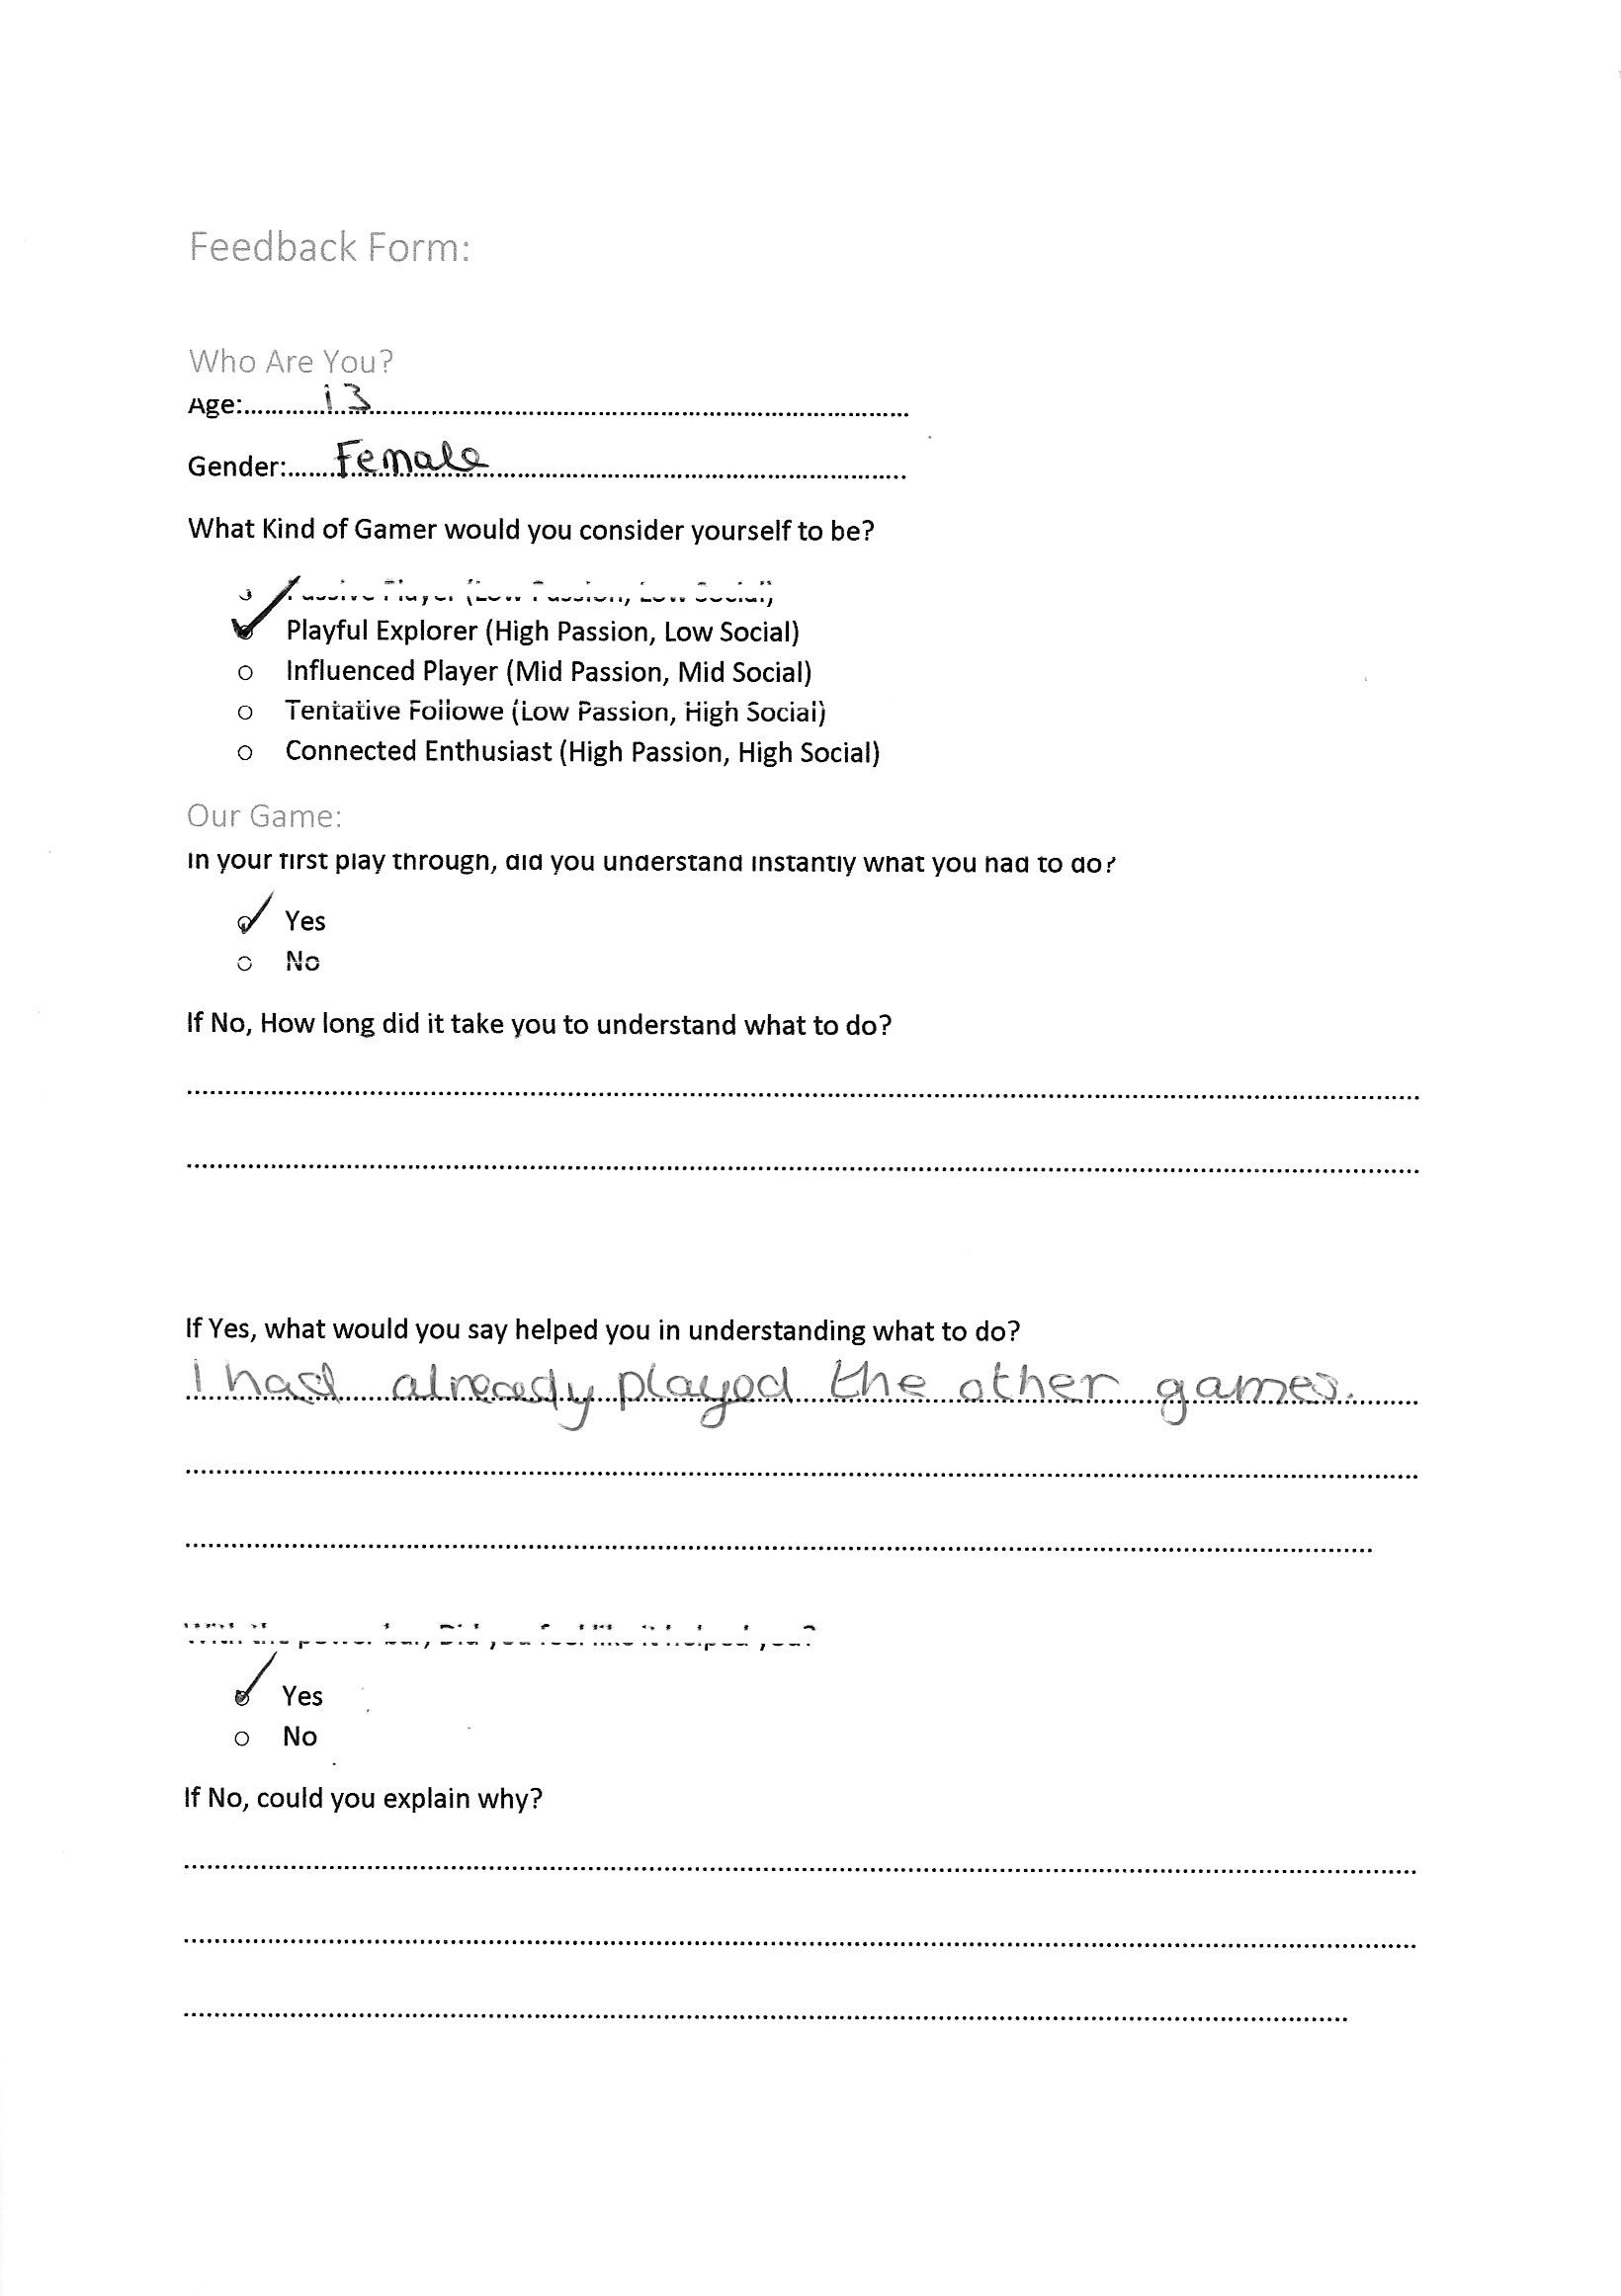 Feedback Form:
Who Are You?
Age:............13............
Gender:.......Female............
What Kind of Gamer would you consider yourself to be?
Passive Player (Low Passion, Low Social)
Playful Explorer (High Passion, Low Social)
Influenced Player (Mid Passion, Mid Social)
Tentative Followe (Low Passion, High Social)
Connected Enthusiast (High Passion, High Social)
Our Game:
In your first play through, did you understand instantly what you had to do?
Yes
No
If No, How long did it take you to understand what to do?
If Yes, what would you say helped you in understanding what to do?
I had already played the other games.
With the power bar, Did you feel like it helped you?
Yes
No
If No, could you explain why?